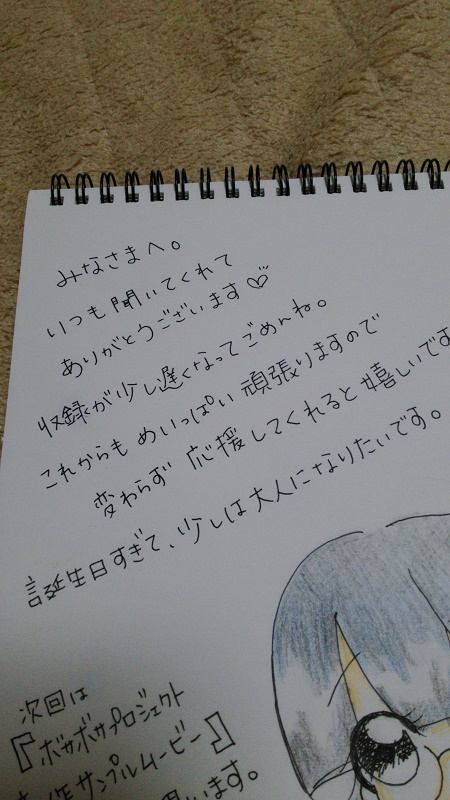 みなさまへ。
いつも聞いてくれて
ありがとうございます♡
収録が少し遅くなってごめんね。
これからもめいっぱい頑張りますので
変わらず応援してくれると嬉しいです
誕生日すぎて、少しは大人になりたいです。
次回は
『ボサボサプロジェクト
作サンプルムービー』
います。